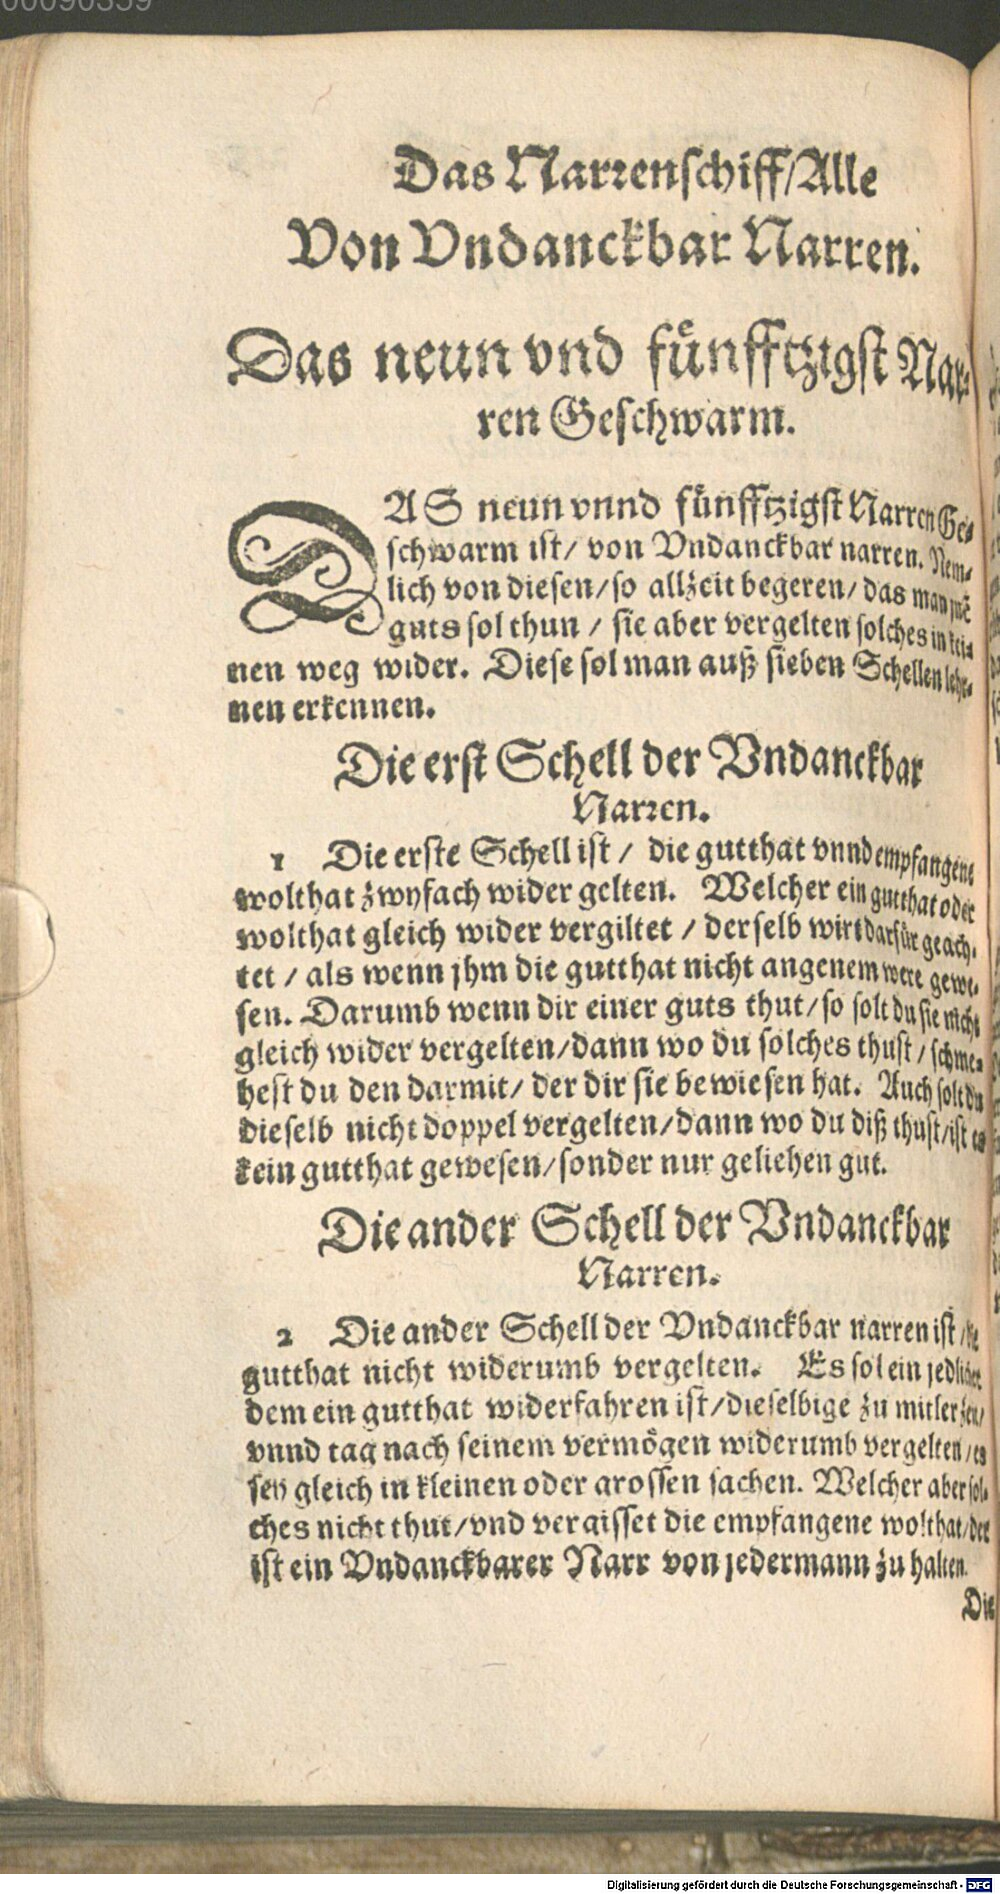 00090359
Das Narrenschiff/Alle
Von Vndanckbar Narren.
Das neun vnd fünfftzigst Nar-
ren Geschwarm.
DAS neun vnnd fünfftzigst Narren Ge-
schwarm ist/ von Vndanckbar narren. Nem-
lich von diesen/so allzeit begeren/ das man jnē
guts sol thun / sie aber vergelten solches in kei-
nen weg wider. Diese sol man auß sieben Schellen lehr-
nen erkennen.
Die erst Schell der Vndanckbar
Narren.
1 Die erste Schell ist / die gutthat vnnd empfangene
wolthat zwyfach wider gelten. Welcher ein gutthat oder
wolthat gleich wider vergiltet / derselb wirt darfür geach-
tet / als wenn jhm die gutthat nicht angenem were gewe-
sen. Darumb wenn dir einer guts thut/so solt du sie nicht
gleich wider vergelten/dann wo du solches thust / schme-
hest du den darmit/ der dir sie bewiesen hat. Auch solt du
dieselb nicht doppel vergelten/dann wo du diß thust/ist es
kein gutthat gewesen/sonder nur geliehen gut.
Die ander Schell der Vndanckbar
Narren.
2 Die ander Schell der Vndanckbar narren ist / die
gutthat nicht widerumb vergelten. Es sol ein jedlicher
dem ein gutthat widerfahren ist/dieselbige zu mitler zeit/
vnnd tag nach seinem vermögen widerumb vergelten / es
sey gleich in kleinen oder grossen sachen. Welcher aber sol-
ches nicht thut/vnd vergisset die empfangene wolthat/der
ist ein Vndanckbarer Narr von jedermann zu halten.
Die
Digitalisierung gefördert durch die Deutsche Forschungsgemeinschaft - DFG